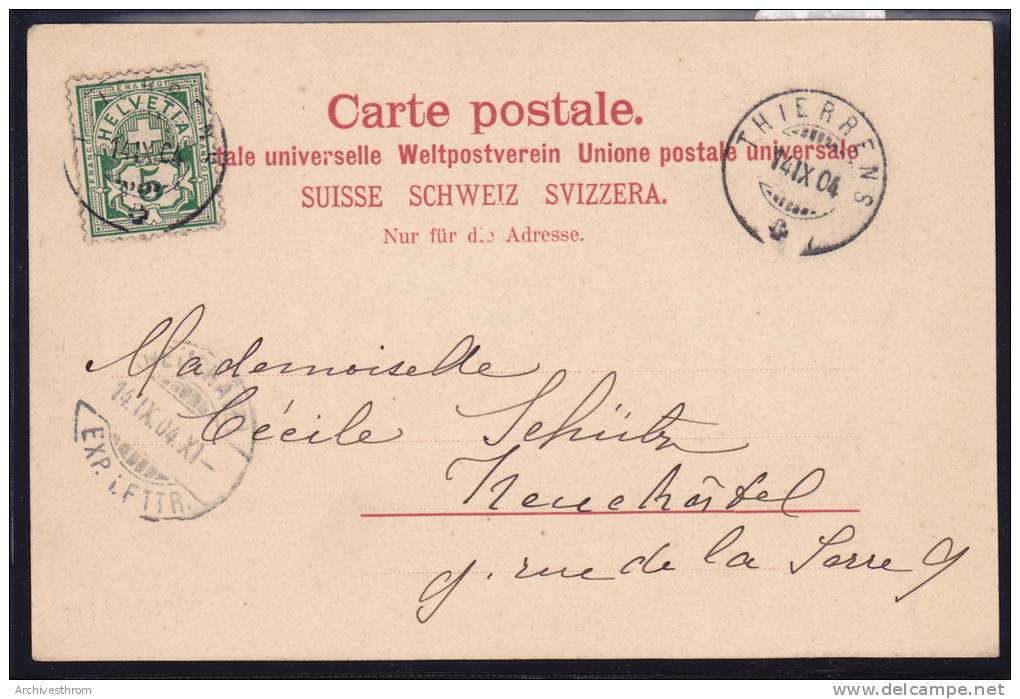 Carte postale.
tale universelle Weltpostverein Unione postale universale
SUISSE SCHWEIZ SVIZZERA.
Nur für die Adresse.
FRANCO
HELVETIA
14 IX 04
5
THIERRENS
14 IX 04
Mademoiselle
Cécile Schütz
Neuchâtel
9. rue de la Serre 9
14.IX.04.XI-
EXP. LETTR.
Archivesthrom
delcampe.net